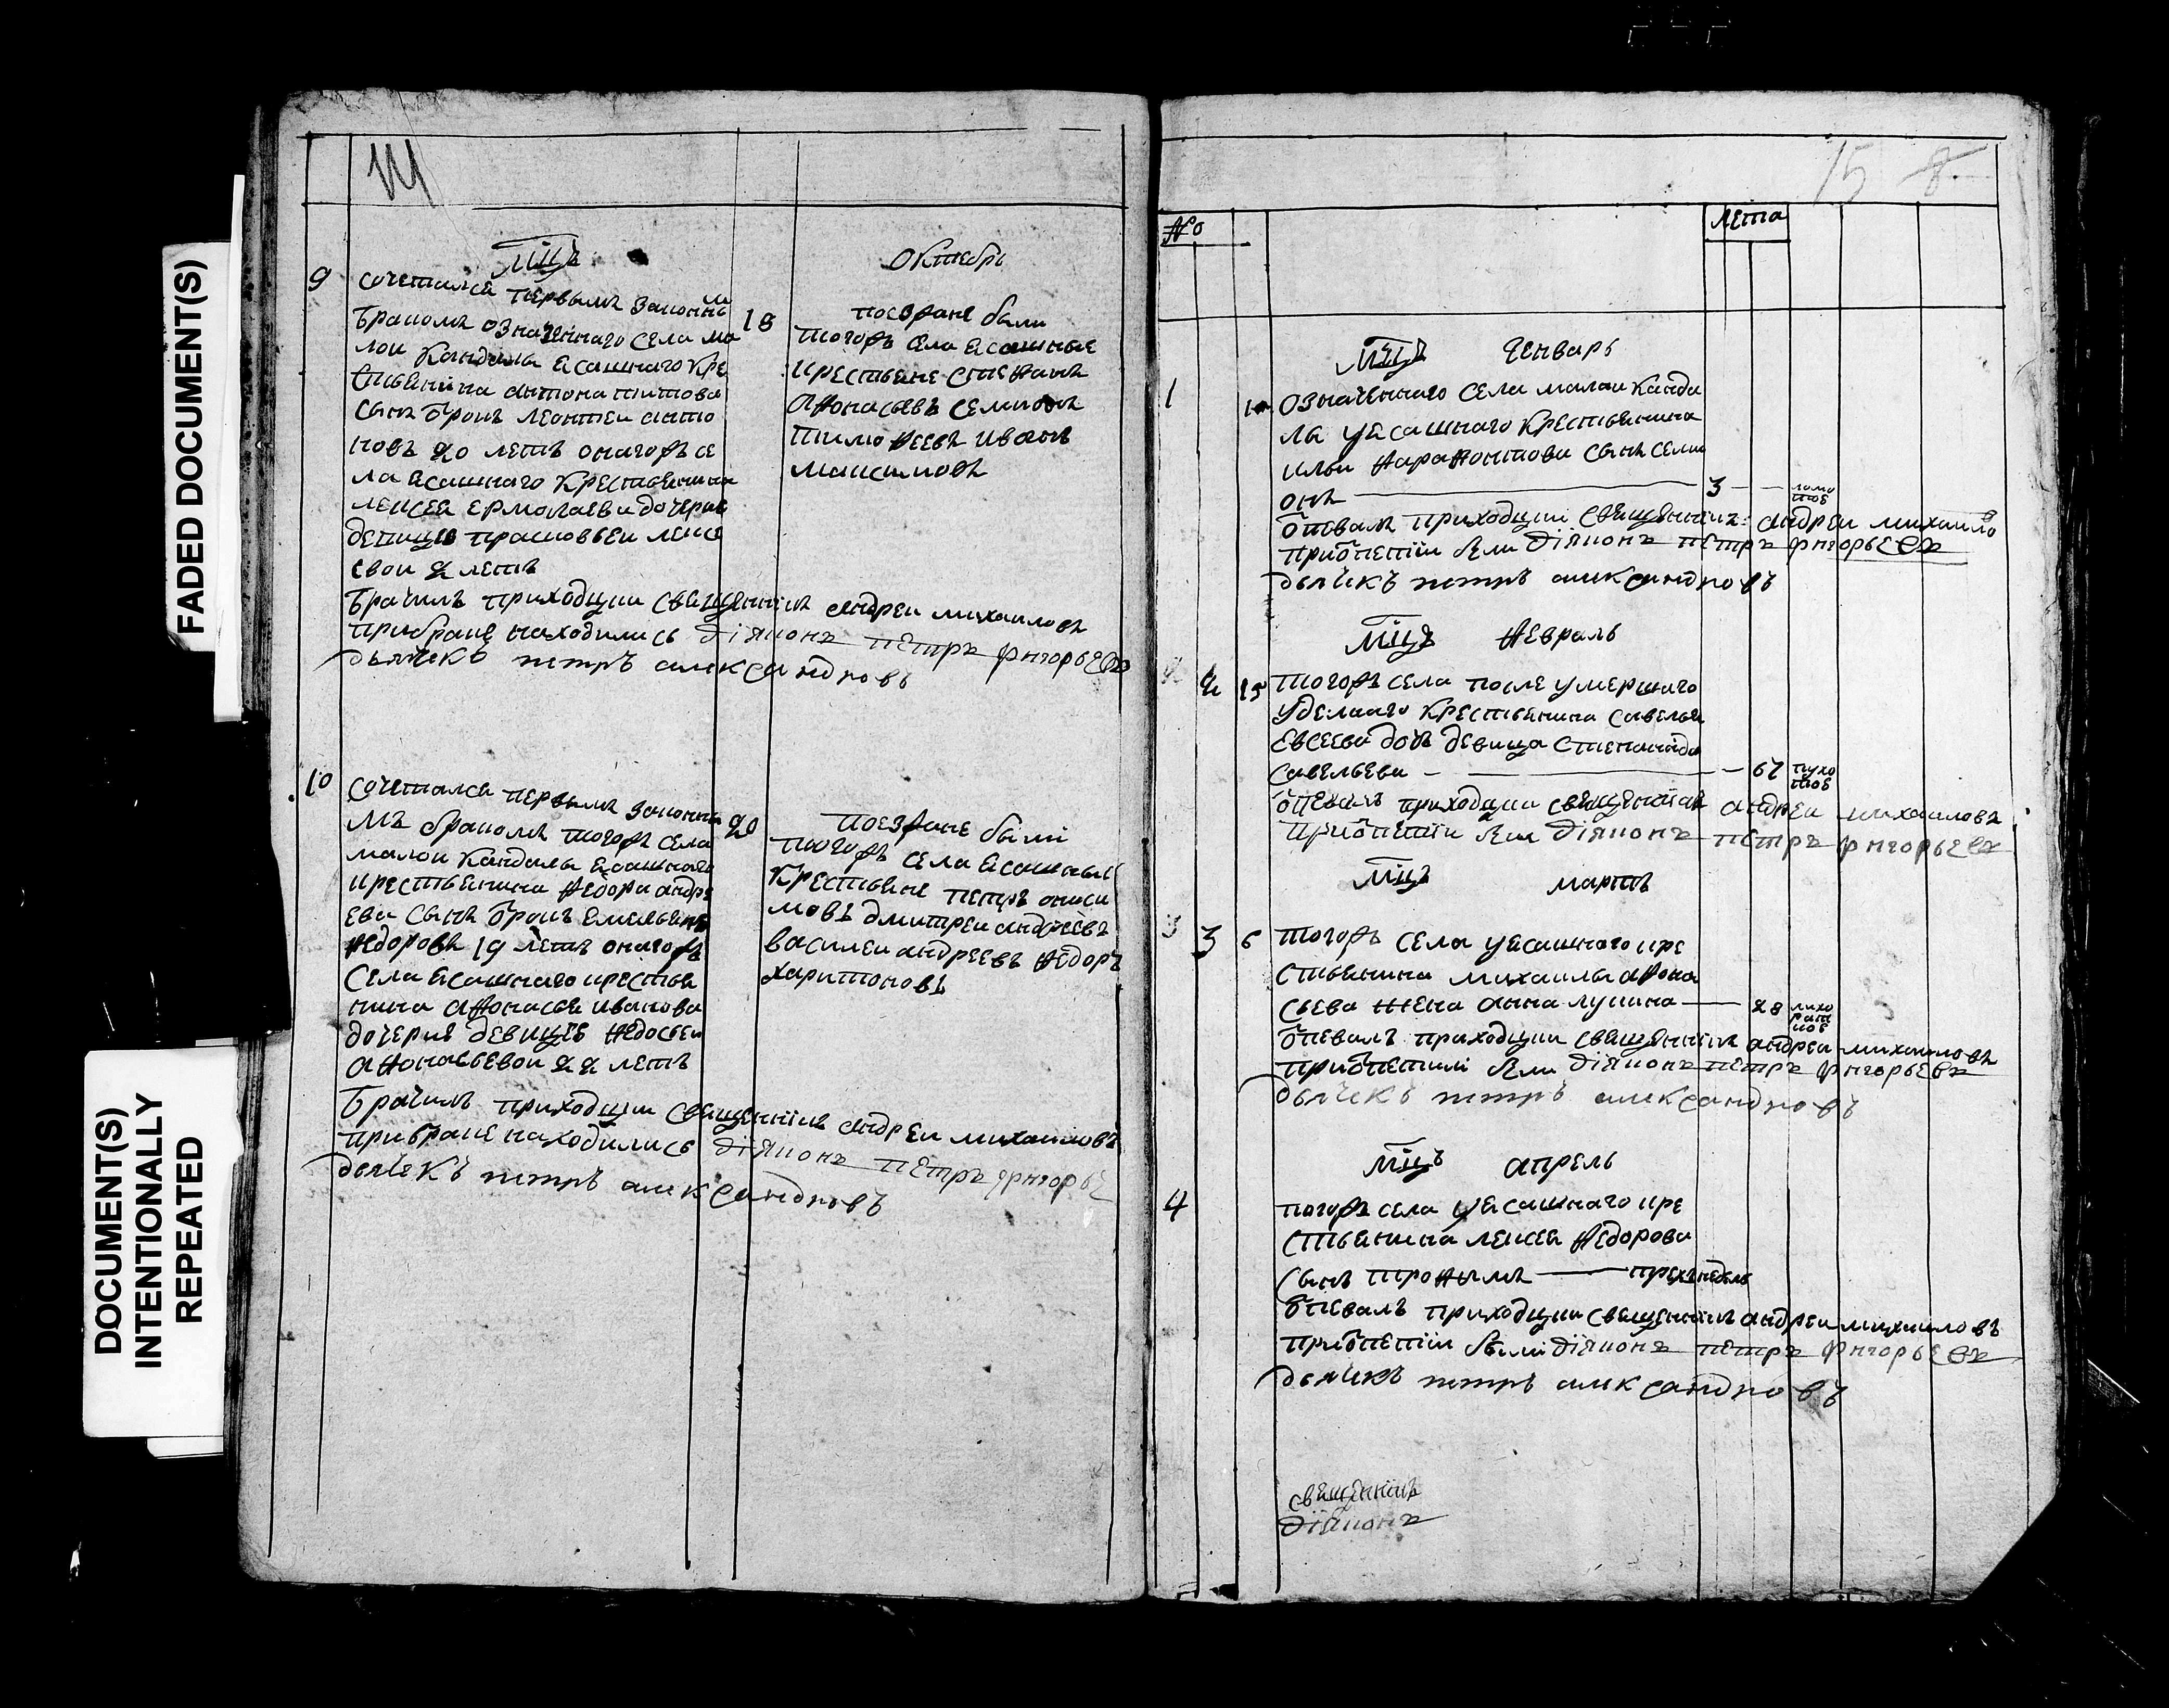 FADED DOCUMENT(S)
DOCUMENT(S)
INTENTIONALLY
REPEATED
14
мцъ
Октебрь
9
сочетался первымъ законнымъ
бракомъ означеннаго села ма
лои Кандалы ясашнаго Кре
стьянина антона титова
сынъ Леонтеи анто
новъ 20 летъ онагожъ се
ла ясашнаго Крестьянина
лексея ермолаева дочерью
девицею прасковьеи лексе
евои
летъ
Брачилъ приходции священникъ андреи михаиловъ
при браке находились діяконъ петръ григорьевъ
дьячекъ петръ александровъ
18
поезжане были
тогожъ села ясашные
крестьяне степанъ
афонасьевъ семионъ
тимофеевъ иванъ
максимовъ
10
сочетался первымъ законны
мъ бракомъ тогожъ села
малои Кандалы ясашнаго
крестьянина федора андре
ева сынъ емельянъ
федоровъ 19 летъ онагожъ
села ясашнаго крестья
нина афонасья иванова
дочерью девицею федосьеи
афонасьевои 22 летъ
Брачилъ приходции священникъ андреи михаиловъ
при браке находились діяконъ петръ григорье
дьячекъ петръ александровъ
20
поезжане были
тогожъ села ясашныи
крестьяне петръ аниси
мовъ дмитреи андреевъ
василеи андреевъ федоръ
харитоновъ
15 8
№
лета
мцъ генварь
1
означеннаго села малои Канда
лы уясашнаго крестьянина
ильи фарафонтова сынъ семи
онъ 3 ломо
тое
отпевалъ приходции священникъ андреи михаило
при отпетіи были діяконъ петръ григорьевъ
дьячекъ петръ александровъ
мцъ февраль
2 15 тогожъ села после умершаго
уделнаго крестьянина савелья
евсеева дочь девица степанида
савельева 67
отпевалъ приходции священникъ андреи михаиловъ
при отпетіи были діяконъ петръ григорьевъ
мцъ мартъ
3
3 6 тогожъ села уясашнаго кре
стьянина михаилы афона
сьева жена анна лукина 28 лихо
рат
кое
отпевалъ приходции священникъ андреи михаиловъ
при отпетіи были діяконъ петръ григорьевъ
дьячекъ петръ александровъ
мцъ апрель
4 тогожъ села уясашнаго кре
стьянина лексея федорова
сынъ трофимъ трехъ недель
отпевалъ приходции священникъ андреи михаиловъ
при отпетіи были діяконъ петръ григорьевъ
дьячекъ петръ александровъ
священникъ
діяконъ